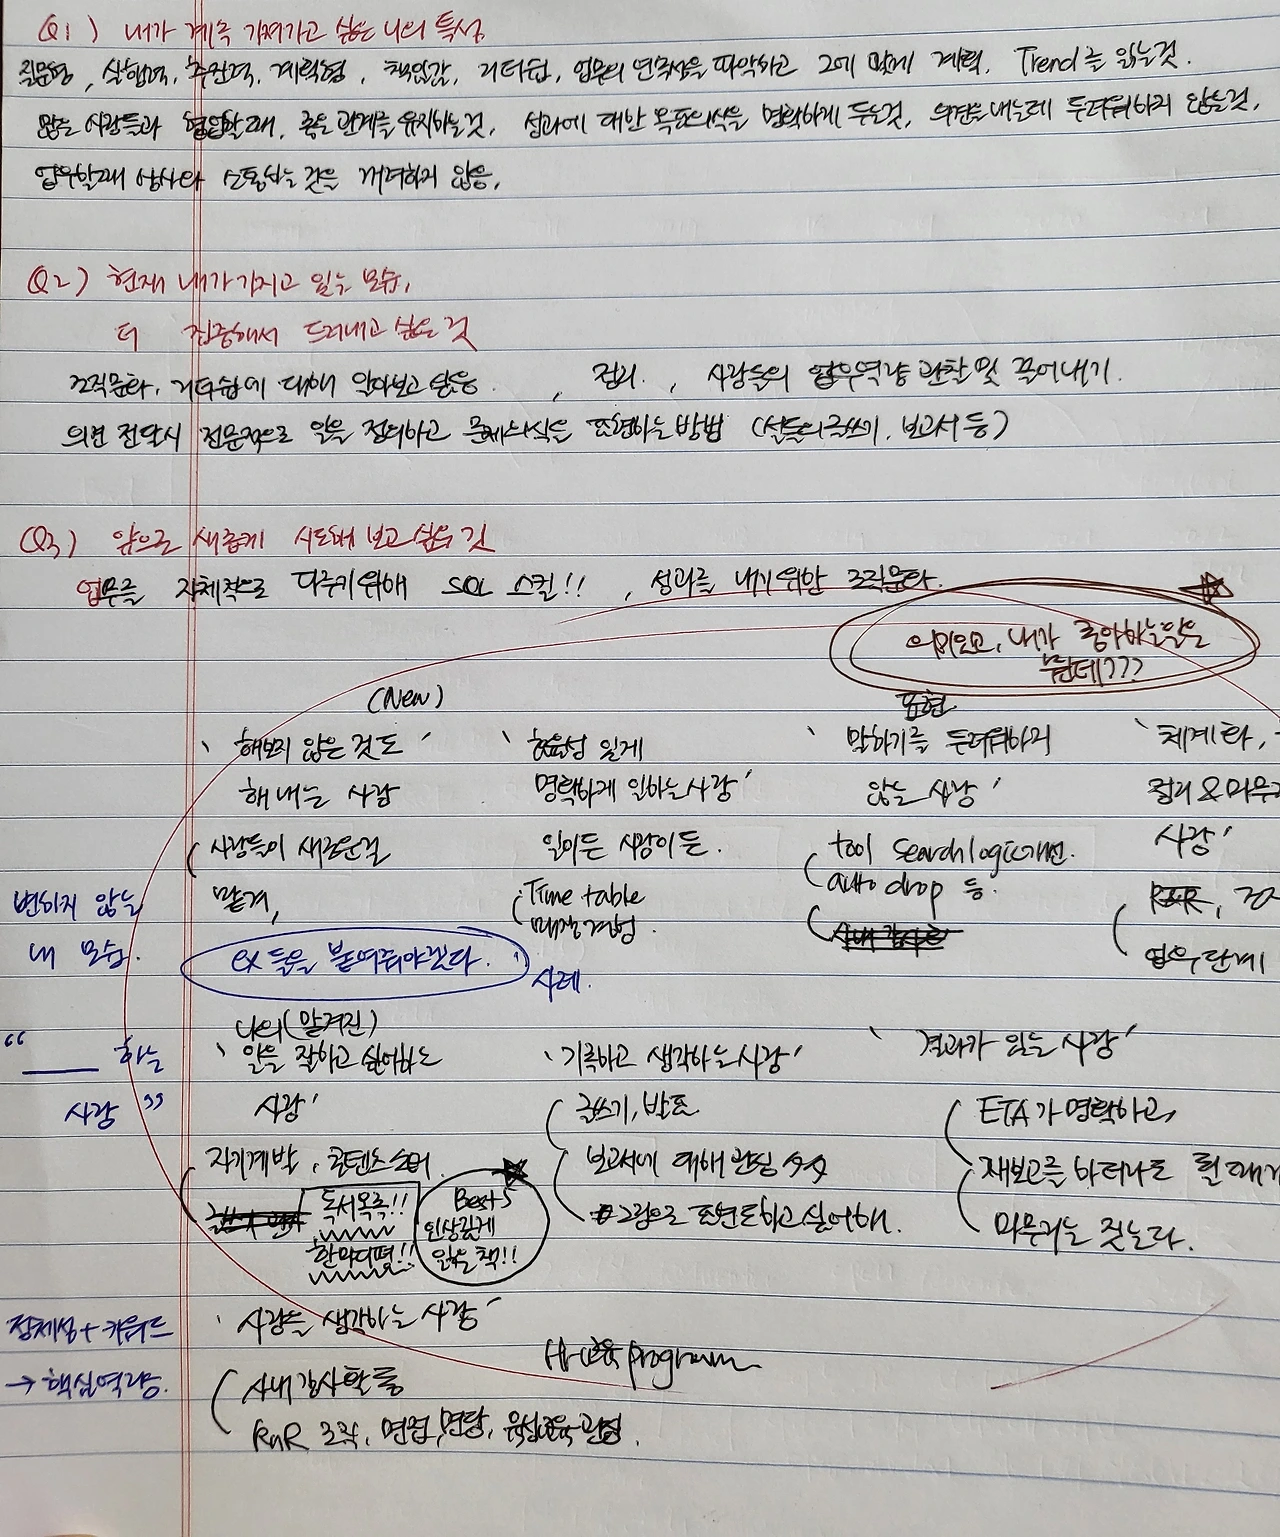 Q1) 내가 계속 가져가고 싶은 나의 특성
질문형, 실행력, 추진력, 계획형, 책임감, 리더쉽, 업무의 연속성을 파악하고 그에 맞게 계획, Trend를 읽는것.
많은 사람들과 협업할때, 좋은 관계를 유지하는것, 성과에 대한 목표의식을 명확하게 두는것, 의견을 내는데 두려워하지 않는것,
업무할때 상사와 소통하는 것을 꺼려하지 않음,
Q2) 현재 내가 가지고 있는 모습,
더 집중해서 드러내고 싶은 것
조직문화, 리더쉽에 대해 알아보고 싶음. , 정리. , 사람들의 업무역량 관찰 및 끌어내기.
의견 전달시 전문적으로 일을 정의하고 문제의식을 표현하는 방법 (설득의 글쓰기, 보고서 등)
Q3) 앞으로 새롭게 시도해 보고 싶은 것
업무를 자체적으로 다루기위해 SQL 스킬!! , 성과를 내기위한 조직문화.
의미있고, 내가 좋아하는일은
뭔데???
(New)
' 해보지 않은 것도 '
해 내는 사람
(사람들이 새로운걸
맡겨,
ex 들을 붙여줘야겠다.
' 효율성 있게
명확하게 일하는 사람'
일이든 사람이든.
(Time table
매장 경험.
사례.
표현
' 말하기를 두려워하지
않는 사람 '
(tool search logic 개선.
auto drop 등.
' 체계화,
정리 & 마무리
사람 '
업무단계
변하지 않는
내 모습.
" ___ 하는
사람 "
나의 (맡겨진)
' 일을 잘하고 싶어하는
사람 '
자기계발, 콘텐츠
독서목록!!
한마디평!!
Best 5
인상깊게
읽은 책!!
' 기록하고 생각하는 사람 '
글쓰기, 발표
보고서에 대해 관심
그림으로 표현도하고 싶어해.
' 결과가 있는 사람 '
ETA가 명확하고,
재보고를 하더라도 될 때까지
마무리는 짓는다.
정체성 + 키워드
→ 핵심역량.
' 사람을 생각하는 사람 '
(사내강사활동
RnR 조직, 면접, 면담,
HR 교육 program